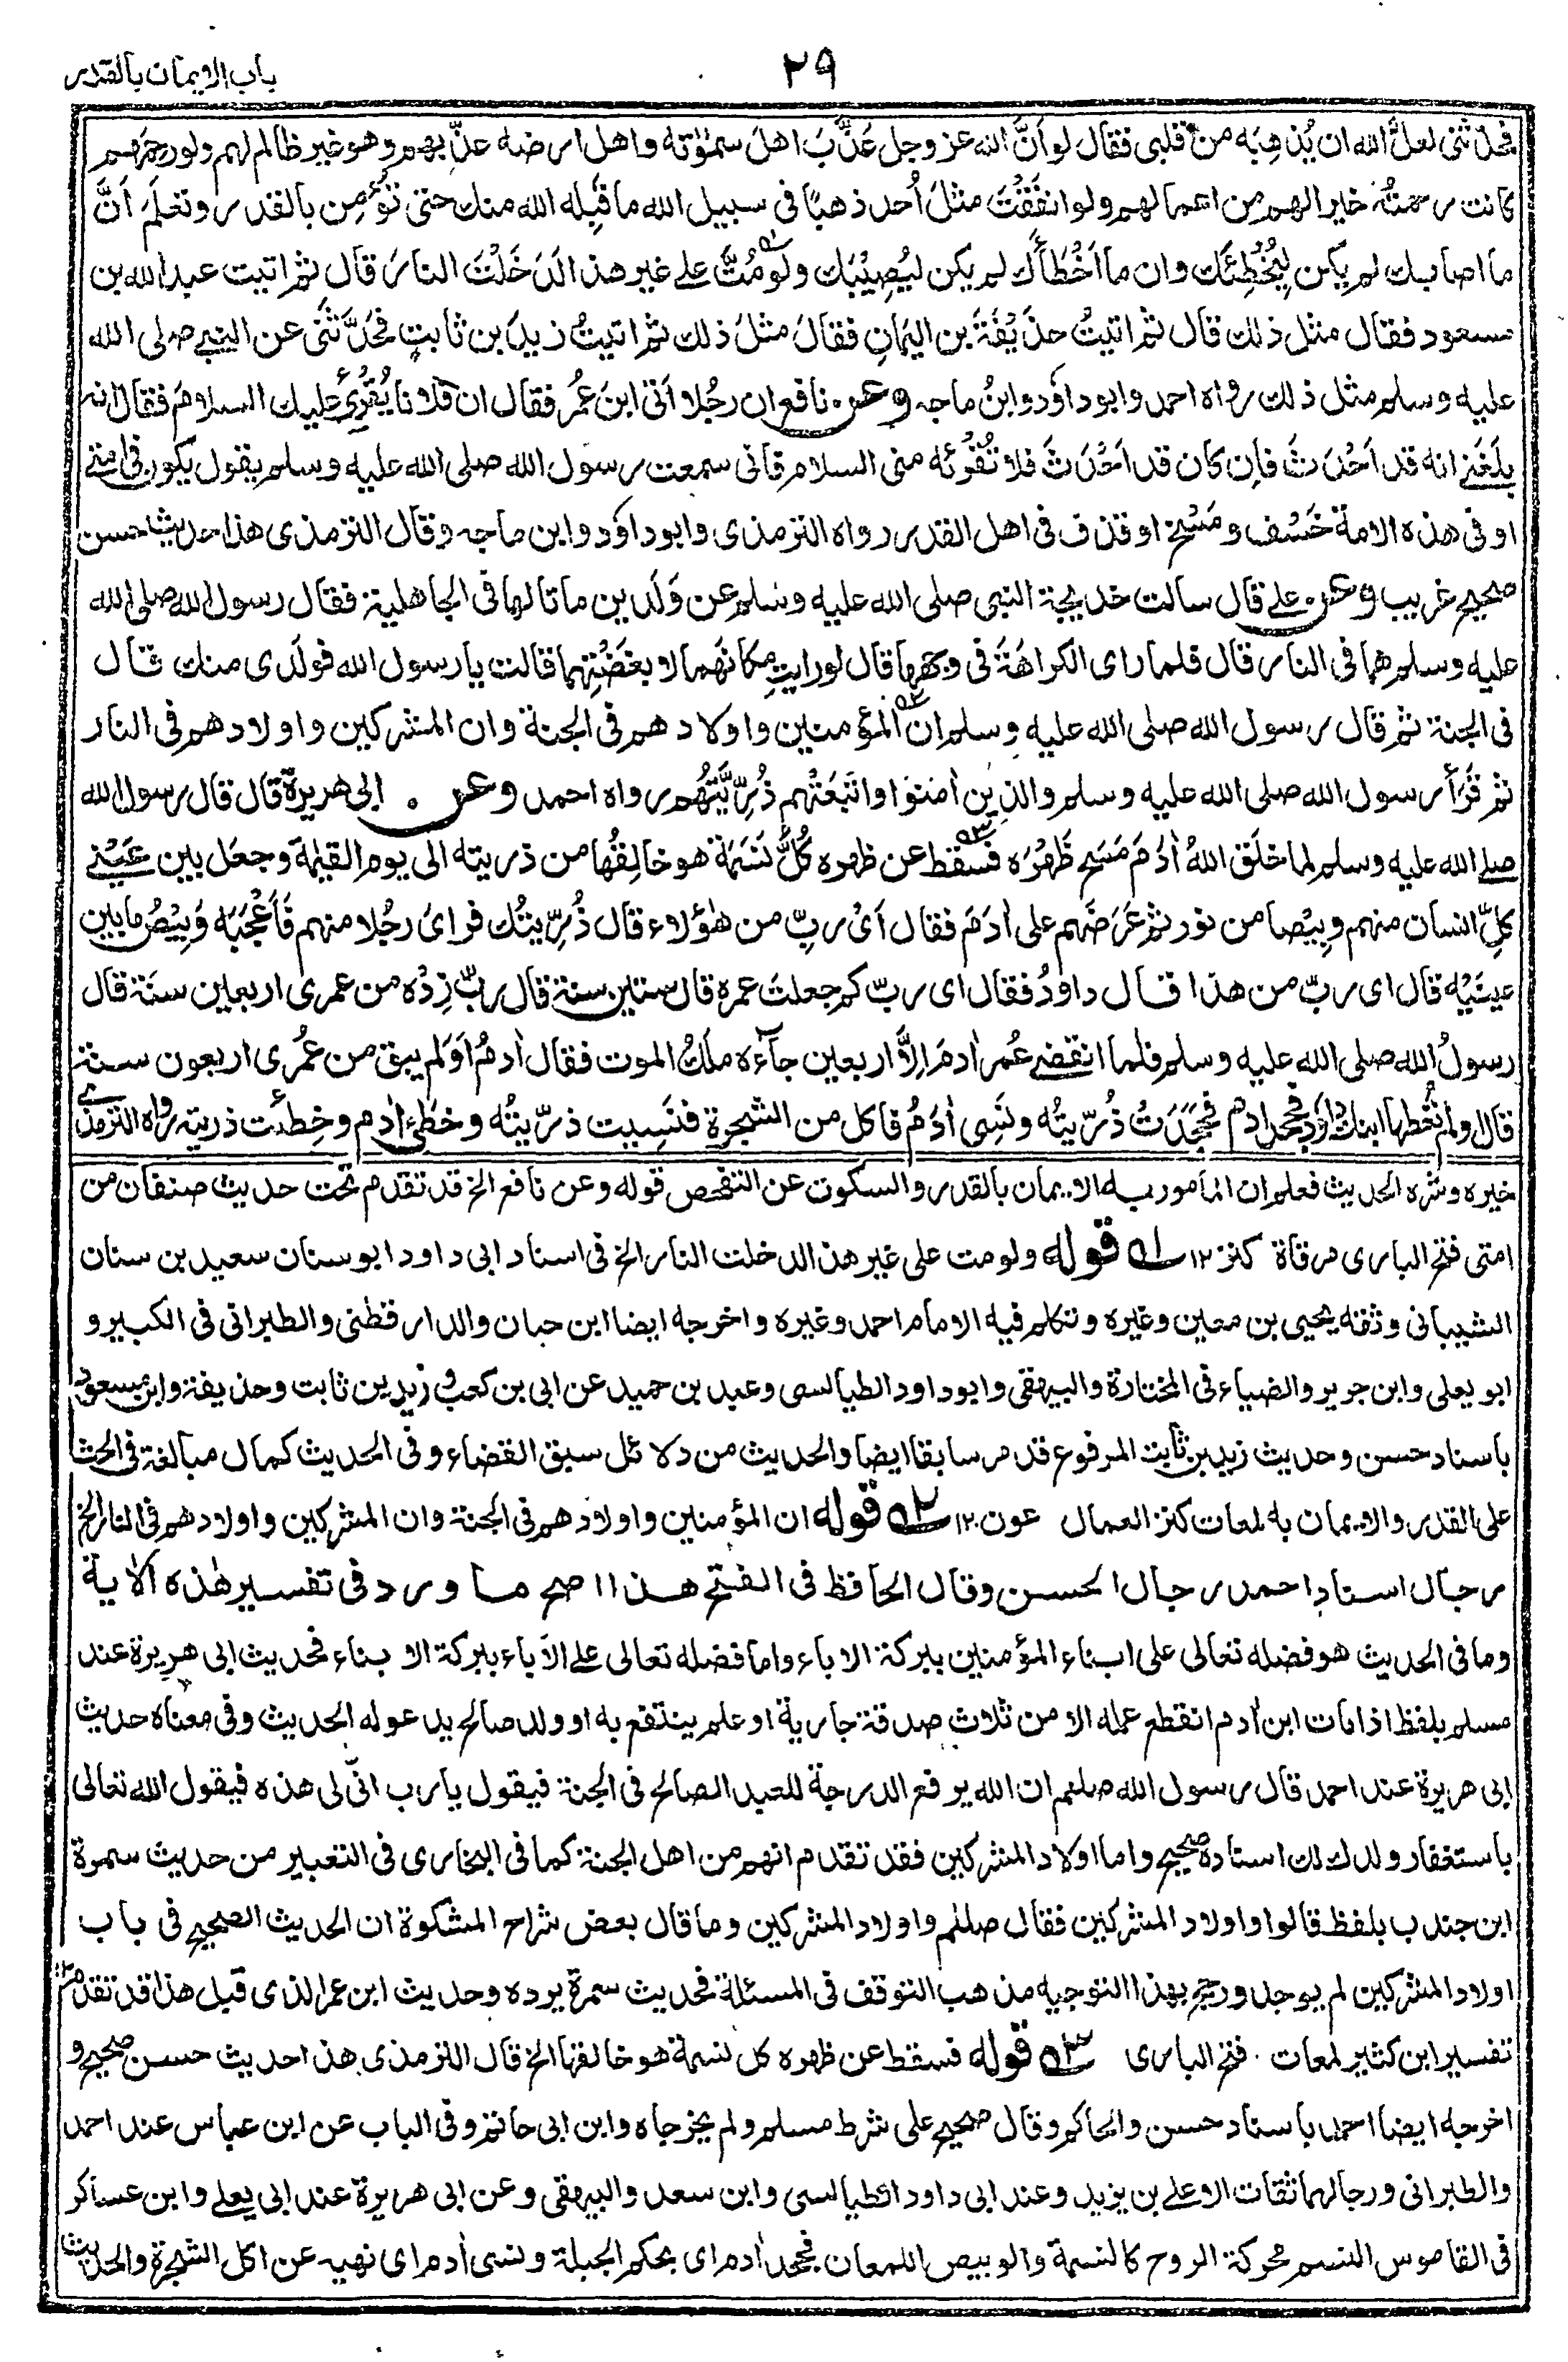 ٢٩
باب الايمان بالقدر
فحدثنى لعلَّ الله ان يُذهِبَه من قلبى فقال لو اَنَّ الله عز وجل عَذَّبَ اهلَ سمٰوٰته واهل ارضه عذّبهم وهو غير ظالم لهم ولو رحمهم
كانت رحمتُه خيرا لهم من اعمالهم ولو انفَقْتَ مثلَ اُحد ذهبًا فى سبيل الله ما قَبِله الله منك حتى تؤمِن بالقدر وتعلَمَ اَنَّ
ما اصابك لم يكن لِيُخْطِئَك وان ما اَخْطَأَك لم يكن لِيُصِيْبَك ولو مُتَّ على غير هذا لَدَخَلْتَ النارَ قال ثم اتيت عبد الله بن
مسعود فقال مثل ذلك قال ثم اتيتُ حذَيْفَةَ بن اليَمانِ فقالَ مثلَ ذلك ثم اتيتُ زيدَ بن ثابتٍ فحَدَّثَنى عن النبى صلى الله
عليه وسلم مثل ذلك رواه احمد وابو داوٗد وابنُ ماجه وعن نافع ان رجُلا اَتٰى ابنَ عُمر فقال ان فلانا يُقْرِئُ عليك السلامَ فقال انه
بلَغَنى انه قد اَحْدَثَ فاِن كان قد اَحْدَثَ فلا تُقْرِئه منى السلام فانى سمعت رسول الله صلى الله عليه وسلم يقول يكون فى امتى
او فى هذه الامة خَسْف ومَسْخ او قذف فى اهل القدر رواه الترمذى وابو داوٗد وابن ماجه وقال الترمذى هذا حديث حسن
صحيح غريب وعن على قال سالت خديجة النبى صلى الله عليه وسلم عن وَلَدين ماتا لها فى الجاهلية فقال رسول الله صلى الله
عليه وسلم هما فى النار قال فلما راى الكراهَةَ فى وجهها قال لو رايتِ مكانَهما لابغَضْتِهما قالت يا رسول الله فولَدى منك قال
فى الجنة ثم قال رسول الله صلى الله عليه وسلم ان المؤمنين واولادهم فى الجنة وان المشركين واولادهم فى النار
ثم قَرَأ رسول الله صلى الله عليه وسلم والذين اٰمنوا واتبَعَتْهم ذُرِّيَّتُهم رواه احمد وعن ابى هريرة قال قال رسول الله
صلى الله عليه وسلم لما خلَق اللهُ اٰدَمَ مَسَح ظَهْرَه فسقط عن ظهره كُلُّ نَسَمَة هو خالِقُها من ذريته الى يوم القيٰمة وجعَل بين عَيْنَى
كلّ انسان منهم وبِيْصا من نور ثم عَرَضَهم على اٰدَمَ فقال اَىْ ربّ من هٰؤلاء قال ذُرِّيتُك فراى رجُلا منهم فَاَعْجَبَه وَبِيْصُ ما بين
عينَيْه قال اى ربّ من هذا قال داوٗدُ فقال اى ربّ كم جعلتَ عمره قال ستين سنة قال ربّ زِدْه من عمرى اربعين سنة قال
رسولُ الله صلى الله عليه وسلم فلما انقضى عُمر اٰدمَ اِلّا اربعين جاءه ملَكُ الموت فقال اٰدمُ اَوَلم يبق من عمُرى اربعون سنة
قال اولم تُعطها ابنك داوٗد فجحد اٰدم فجَحَدَتْ ذُرّيتُه ونَسِى اٰدَمُ فاكل من الشجرة فنَسِيت ذرّيتُه وخطَئ اٰدم وخطِئَت ذريته رواه الترمذى
خيره وشره الحديث فعلم ان المامور به الايمان بالقدر والسكوت عن التفحص قوله وعن نافع الخ قد تقدم تحت حديث صنفان من
امتى فتح البارى مرقاة كنز ١٢ ١ قوله ولو مت على غير هذا لدخلت النار الخ فى اسناد ابى داود ابو سنان سعيد بن سنان
الشيبانى وثقه يحيى بن معين وغيره وتكلم فيه الامام احمد وغيره واخرجه ايضا ابن حبان والدارقطنى والطبرانى فى الكبير و
ابو يعلى وابن جرير والضياء فى المختارة والبيهقى وابو داود الطيالسى وعبد بن حميد عن ابى بن كعب وزيد بن ثابت وحذيفة وابن مسعود
باسناد حسن وحديث زيد بن ثابت المرفوع قد مر سابقا ايضا والحديث من دلائل سبق القضاء وفى الحديث كمال مبالغة فى الحث
على القدر والايمان به لمعات كنز العمال عون ١٢ ٢ قوله ان المؤمنين واولادهم فى الجنة وان المشركين واولادهم فى النار الخ
رجال اسناد احمد رجال الحسن وقال الحافظ فى الفتح هذا اصح ما ورد فى تفسير هٰذه الاٰية
وما فى الحديث هو فضله تعالى على ابناء المؤمنين ببركة الاباء واما فضله تعالى على الاٰباء ببركة الابناء فحديث ابى هريرة عند
مسلم بلفظ اذا مات ابن اٰدم انقطع عمله الا من ثلاث صدقة جارية او علم ينتفع به او ولد صالح يدعو له الحديث وفى معناه حديث
ابى هريرة عند احمد قال رسول الله صلعم ان الله يرفع الدرجة للعبد الصالح فى الجنة فيقول يارب انّى لى هذه فيقول الله تعالى
باستغفار ولدك لك اسناده صحيح واما اولاد المشركين فقد تقدم انهم من اهل الجنة كما فى البخارى فى التعبير من حديث سمرة
ابن جندب بلفظ قالوا واولاد المشركين فقال صلعم واولاد المشركين وما قال بعض شراح المشكوة ان الحديث الصحيح فى باب
اولاد المشركين لم يوجد ورجح بهذا التوجيه مذهب التوقف فى المسئلة فحديث سمرة يرده وحديث ابن عمر الذى قبل هذا قد تقدم ١٢
تفسير ابن كثير لمعات . فتح البارى ٣ قوله فسقط عن ظهره كل نسمة هو خالقها الخ قال الترمذى هذا حديث حسن صحيح و
اخرجه ايضا احمد باسناد حسن والحاكم وقال صحيح على شرط مسلم ولم يخرجاه وابن ابى حاتم وفى الباب عن ابن عباس عند احمد
والطبرانى ورجالهما ثقات الا على بن يزيد وعند ابى داود الطيالسى وابن سعد والبيهقى وعن ابى هريرة عند ابى يعلى وابن عساكر
فى القاموس النسم محركة الروح كالنسمة والوبيص اللمعان فجحد اٰدم اى بحكم الجبلة ونسى اٰدم اى نهيه عن اكل الشجرة والحديث